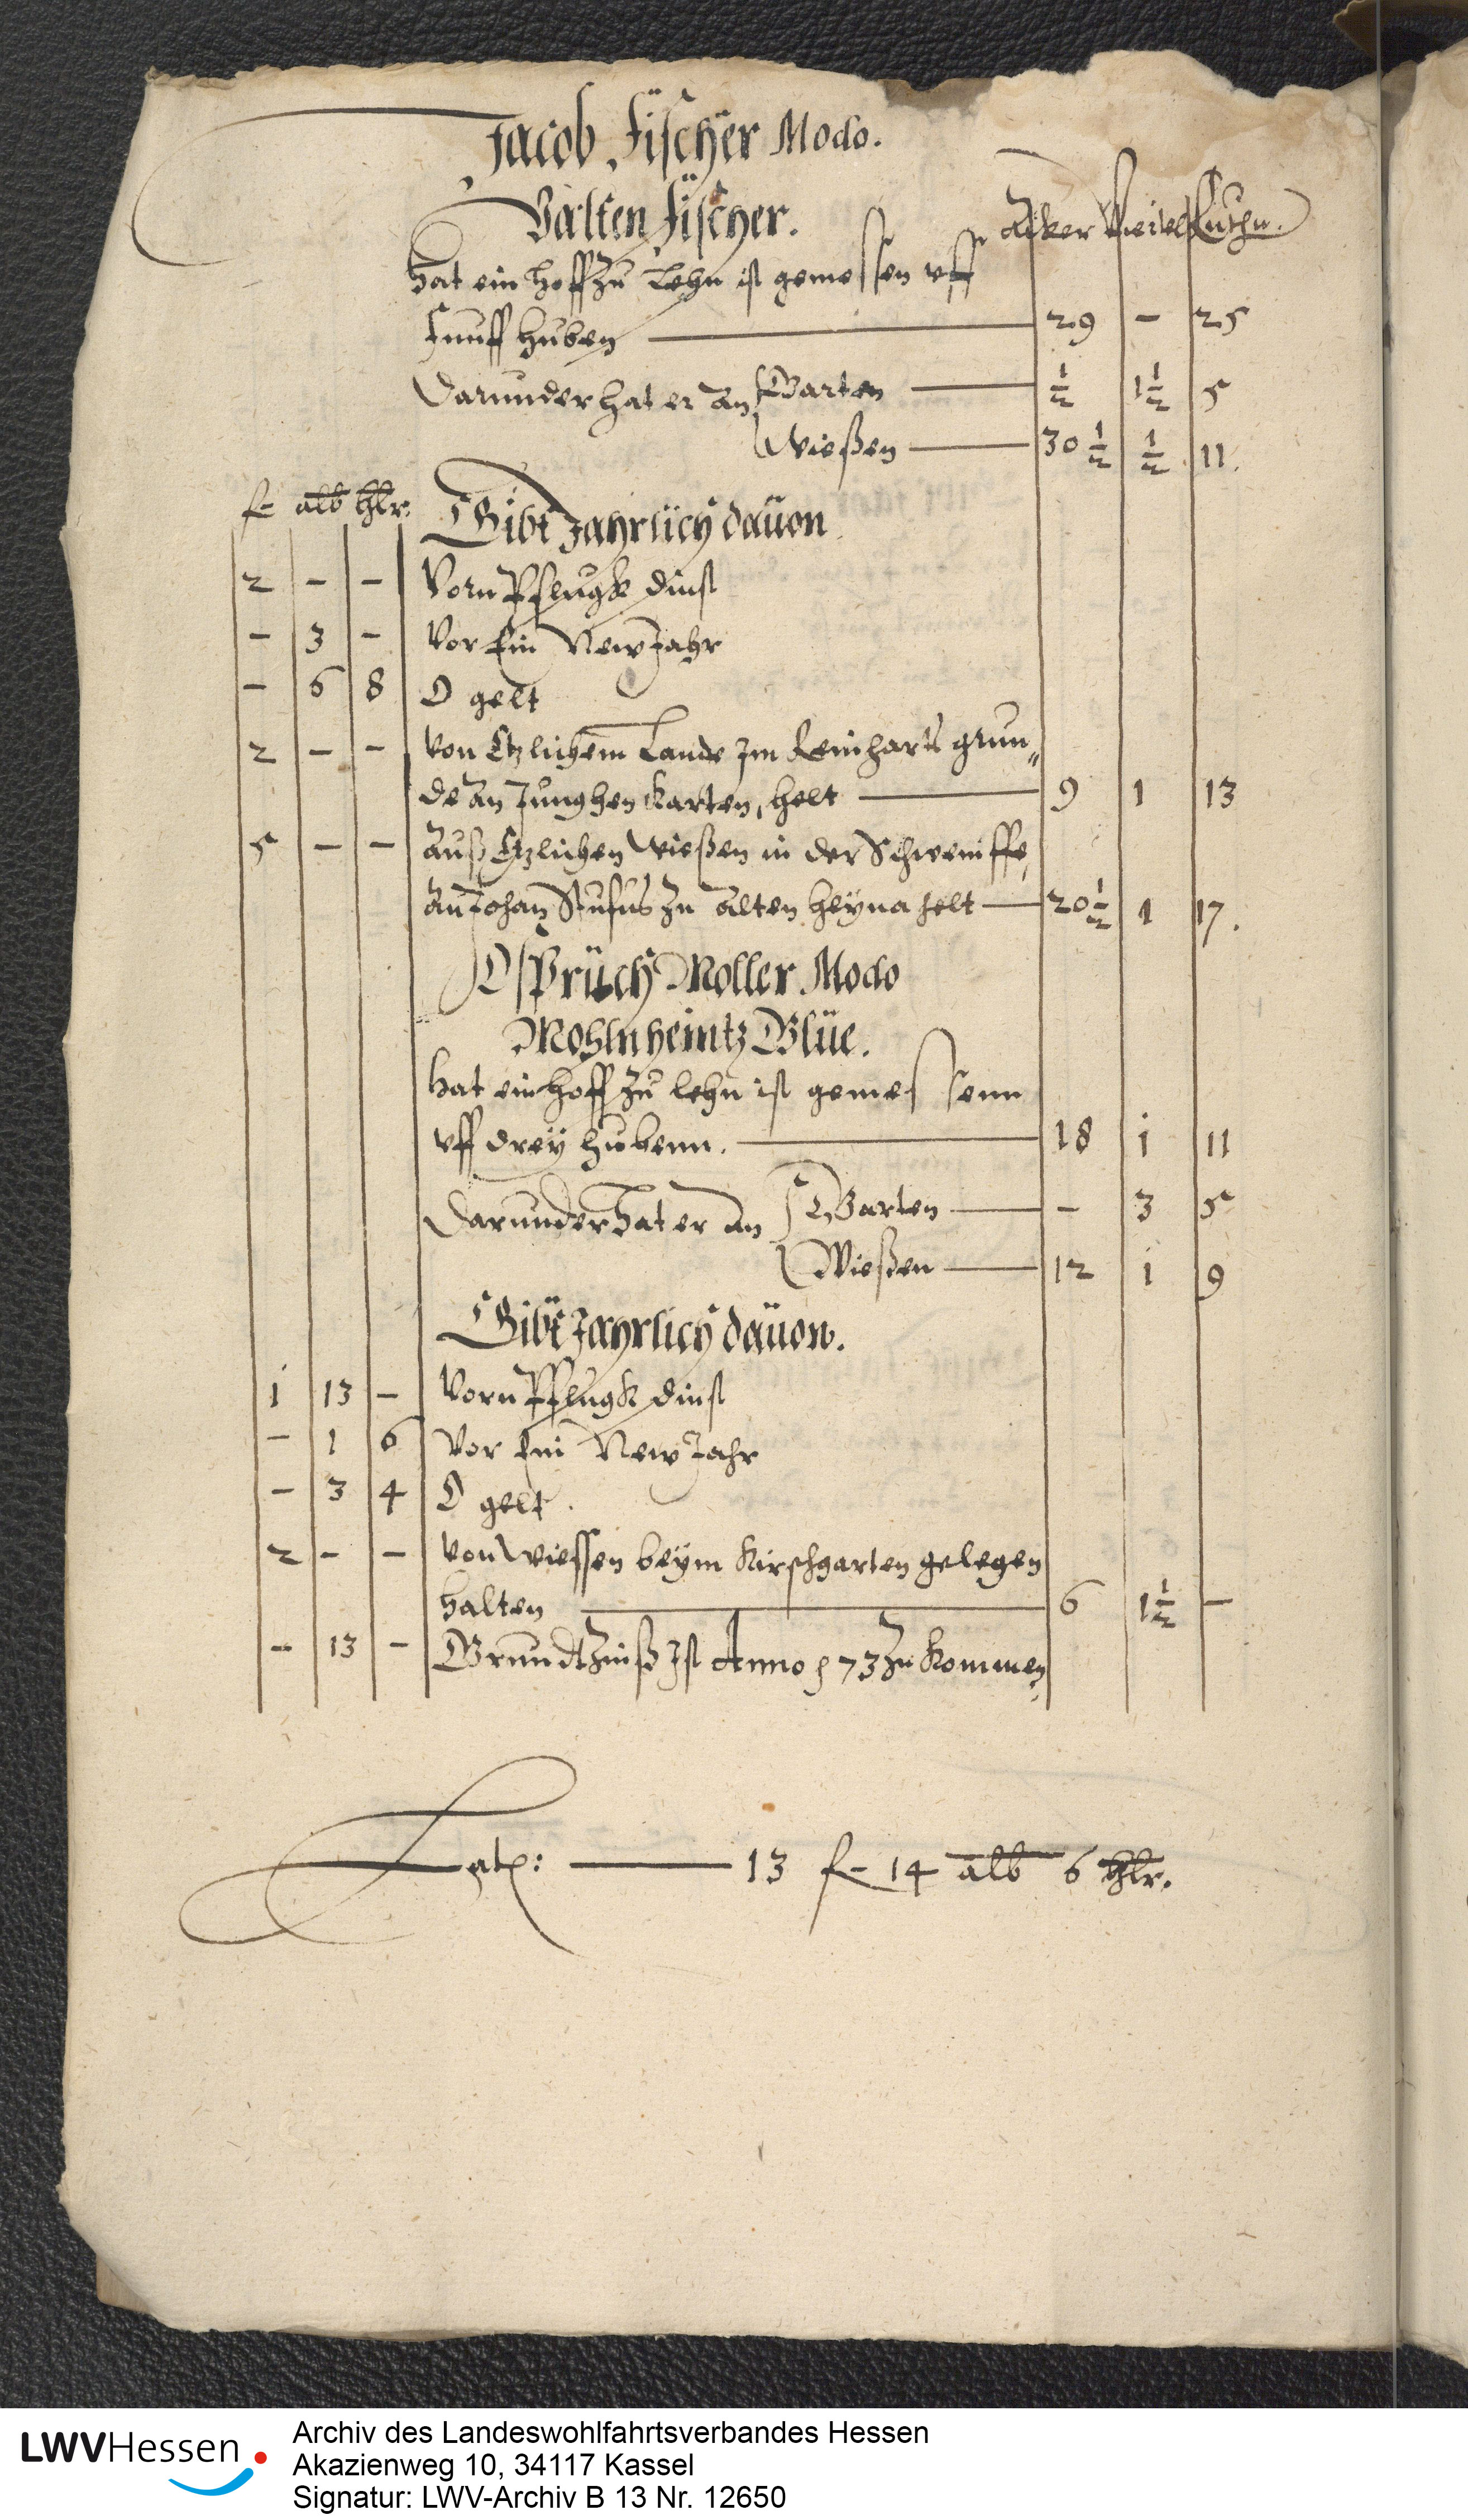 Jacob Fischer Modo.
Valten Fischer.
Acker Viertel Ruthn.
Hat ein Hoff zu Lehn ist gemessen uff
Funff Huben 29 - 25
Darunder hat er an Garten 1/2 1 1/2 5
Wießen 30 1/2 1/2 11.
f alb hlr.
Gibt Jahrlich dauon
2 - - Vorn Pflugk dinst
- 3 - Vor Ein New Jahr
- 6 8 O gelt
2 - - Von Etzlichem Lande Im Reinharts grun„
de an Junghen Karten, helt 9 1 13
5 - - Auß Etzlichen Wießen in der Schweinffe,
an Johan zu alten Heyna helt 20 1/2 1 17.
Moller Modo
Mohlnheintz Blüe.
Hat ein Hoff zu lehn ist gemessenn
uff drey Hubenn. 18 i 11
Darunder hat er an Garten - 3 5
Wießen 12 i 9
Gibt Jahrlich dauon.
i 13 - Vorn Pflugk dinst
- 1 6 Vor Ein New Jahr
- 3 4 O gelt.
2 - - Von Wiessen beym Kirschgarten gelegen
halten 6 1 1/2 -
- 13 - Grundtzinß Ist Anno 573 zu Kommen
Latus: 13 f 14 alb 6 hlr.
LWVHessen
Archiv des Landeswohlfahrtsverbandes Hessen
Akazienweg 10, 34117 Kassel
Signatur: LWV-Archiv B 13 Nr. 12650